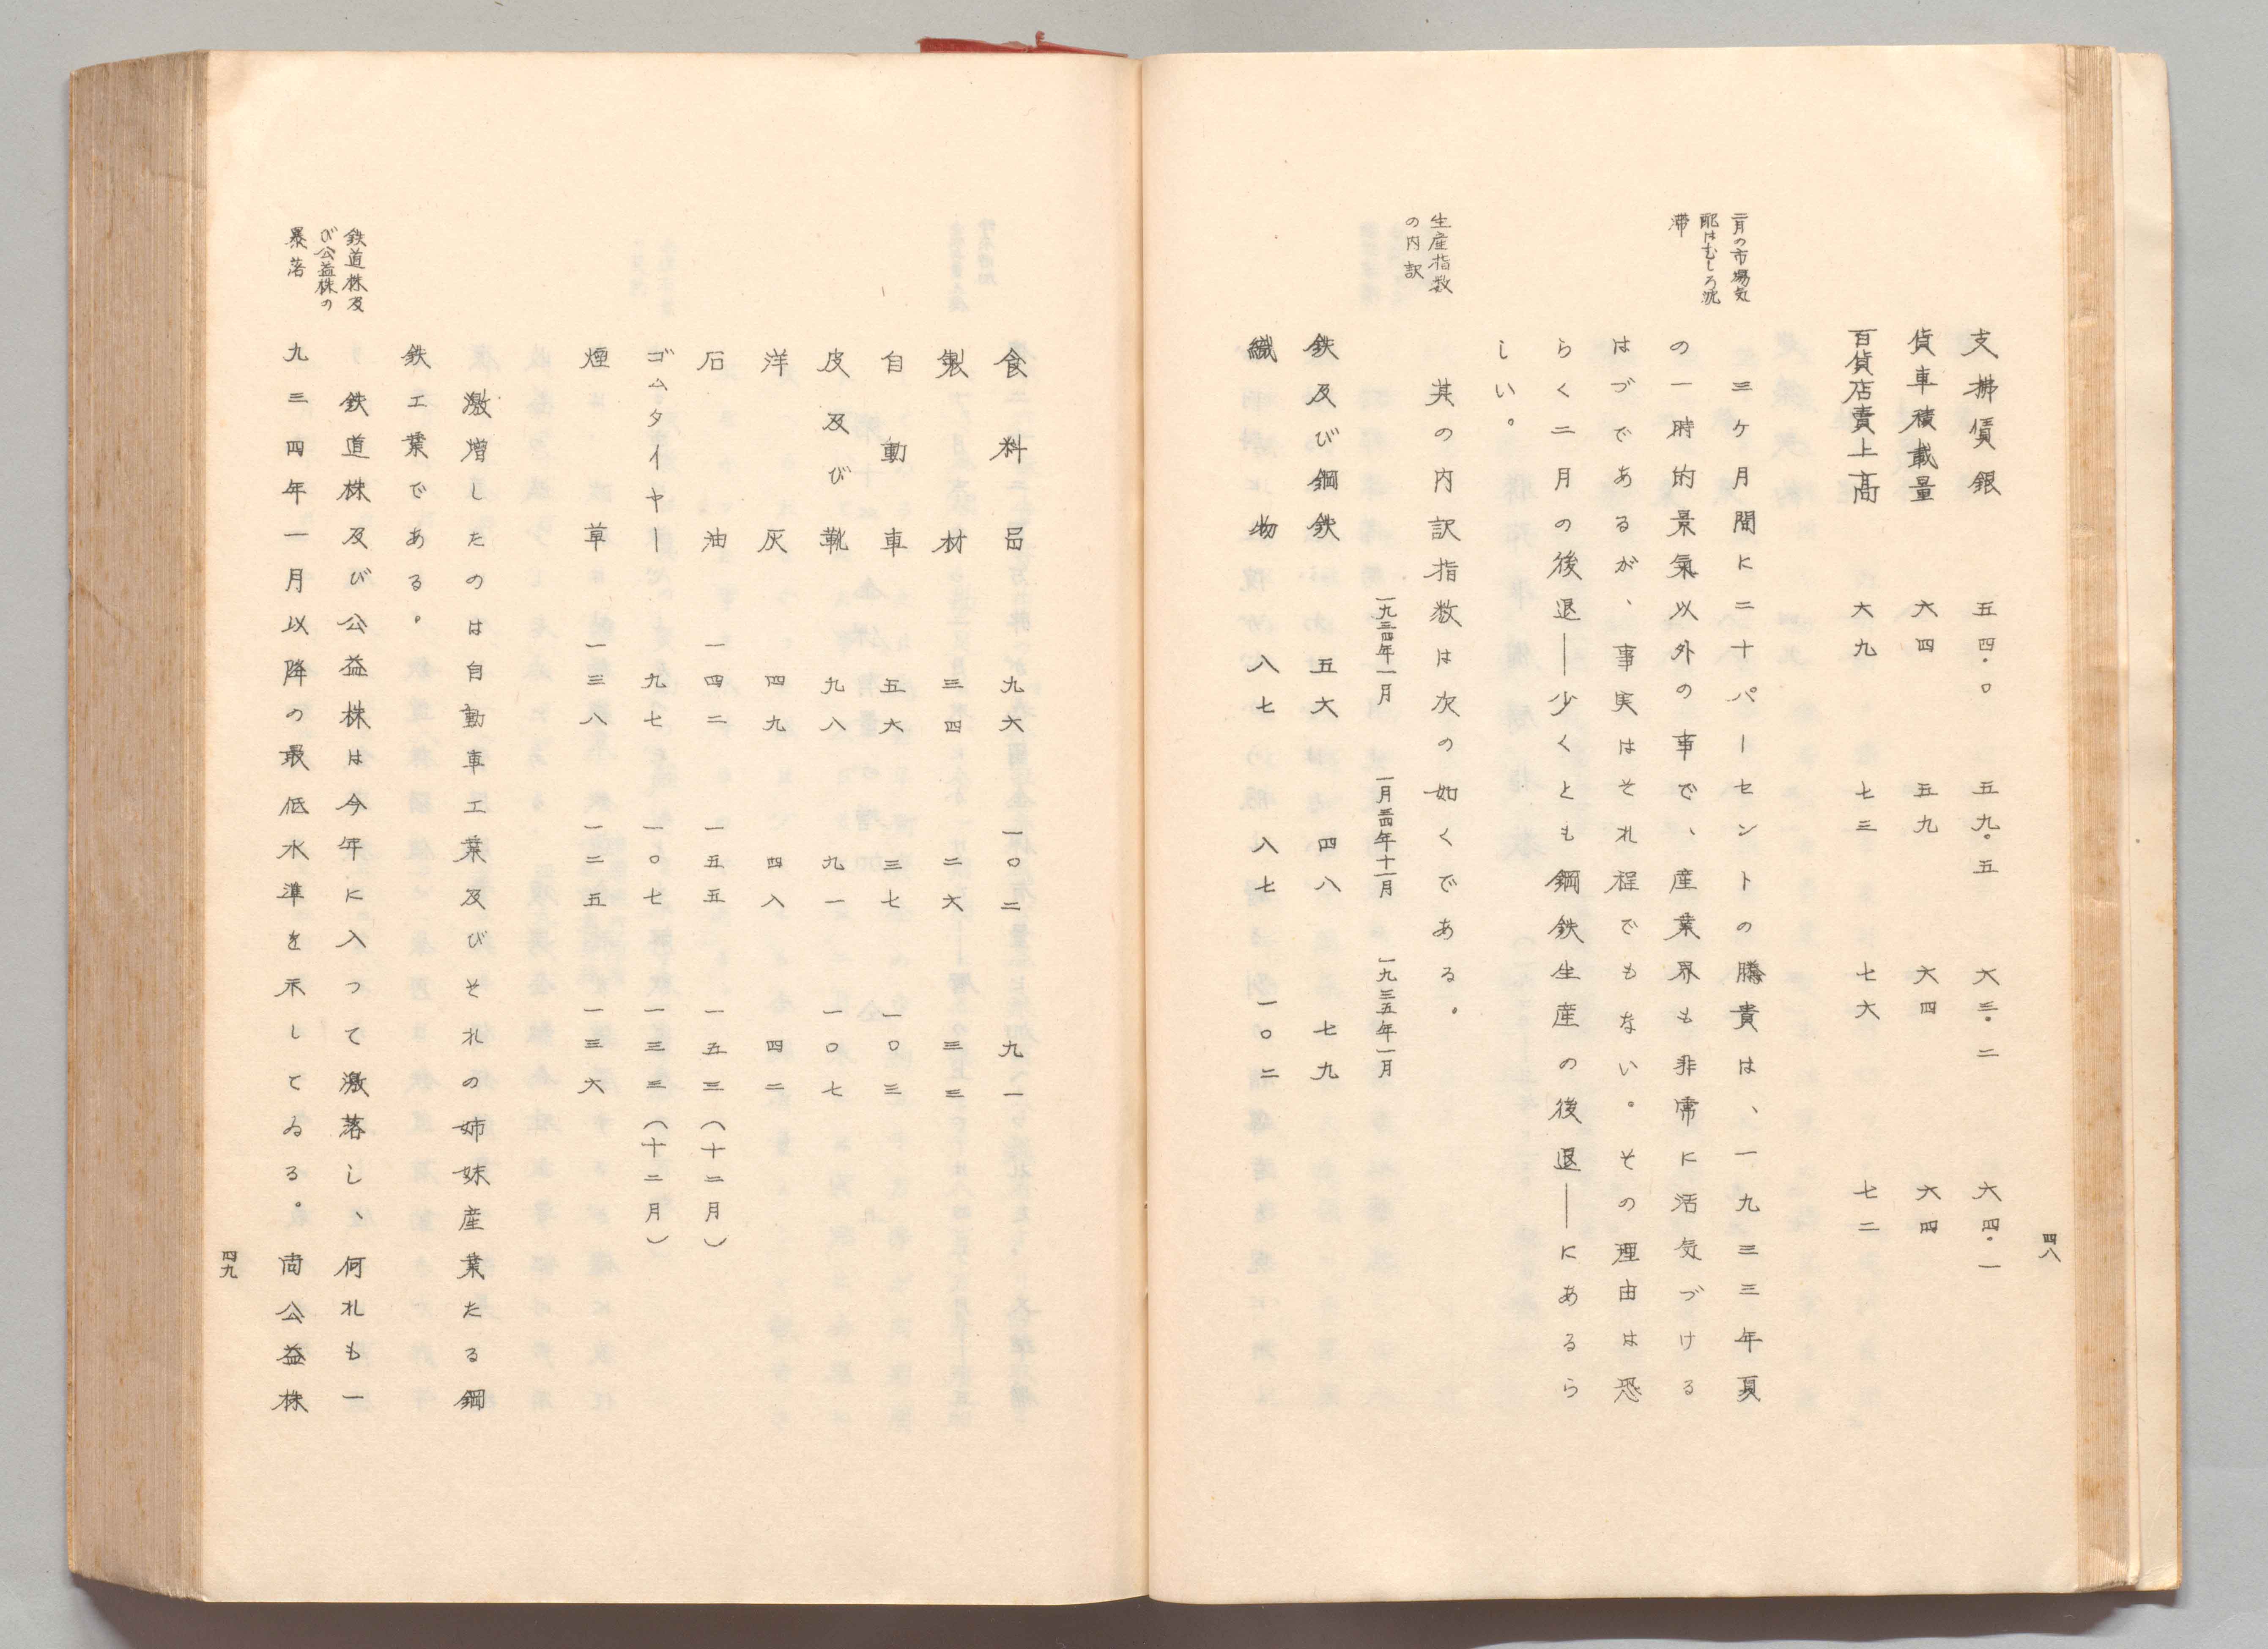 四八
支拂賃銀 五四・〇 五九・五 六三・二 六四・一
貨車積載量 六四 五九 六四 六四
百貨店賣上高 六九 七三 七六 七二
二月の市場気
配はむしろ沈
滞
三ケ月間に二十パーセントの騰貴は、一九三三年夏
の一時的景氣以外の事で、産業界も非常に活気づける
はづであるが、事実はそれ程でもない。その理由は恐
らく二月の後退——少くとも鋼鉄生産の後退——にあるら
しい。
生産指数
の内訳
其の内訳指数は次の如くである。
一九三四年一月 一九三四年十一月 一九三五年一月
鉄及び鋼鉄 五六 四八 七九
織物 八七 八七 一〇二
食料品 九六 一〇二 九一
製材 三四 二六 三三
自動車 五六 三七 一〇三
皮及び靴 九八 九一 一〇七
洋灰 四九 四八 四二
石油 一四二 一五五 一五三(十二月)
ゴムタイヤー 九七 一〇七 一三三(十二月)
煙草 一三八 一二五 一三六
激増したのは自動車工業及びそれの姉妹産業たる鋼
鉄工業である。
鉄道株及
び公益株の
暴落
鉄道株及び公益株は今年に入って激落し、何れも一
九三四年一月以降の最低水準を示してゐる。尚公益株
四九